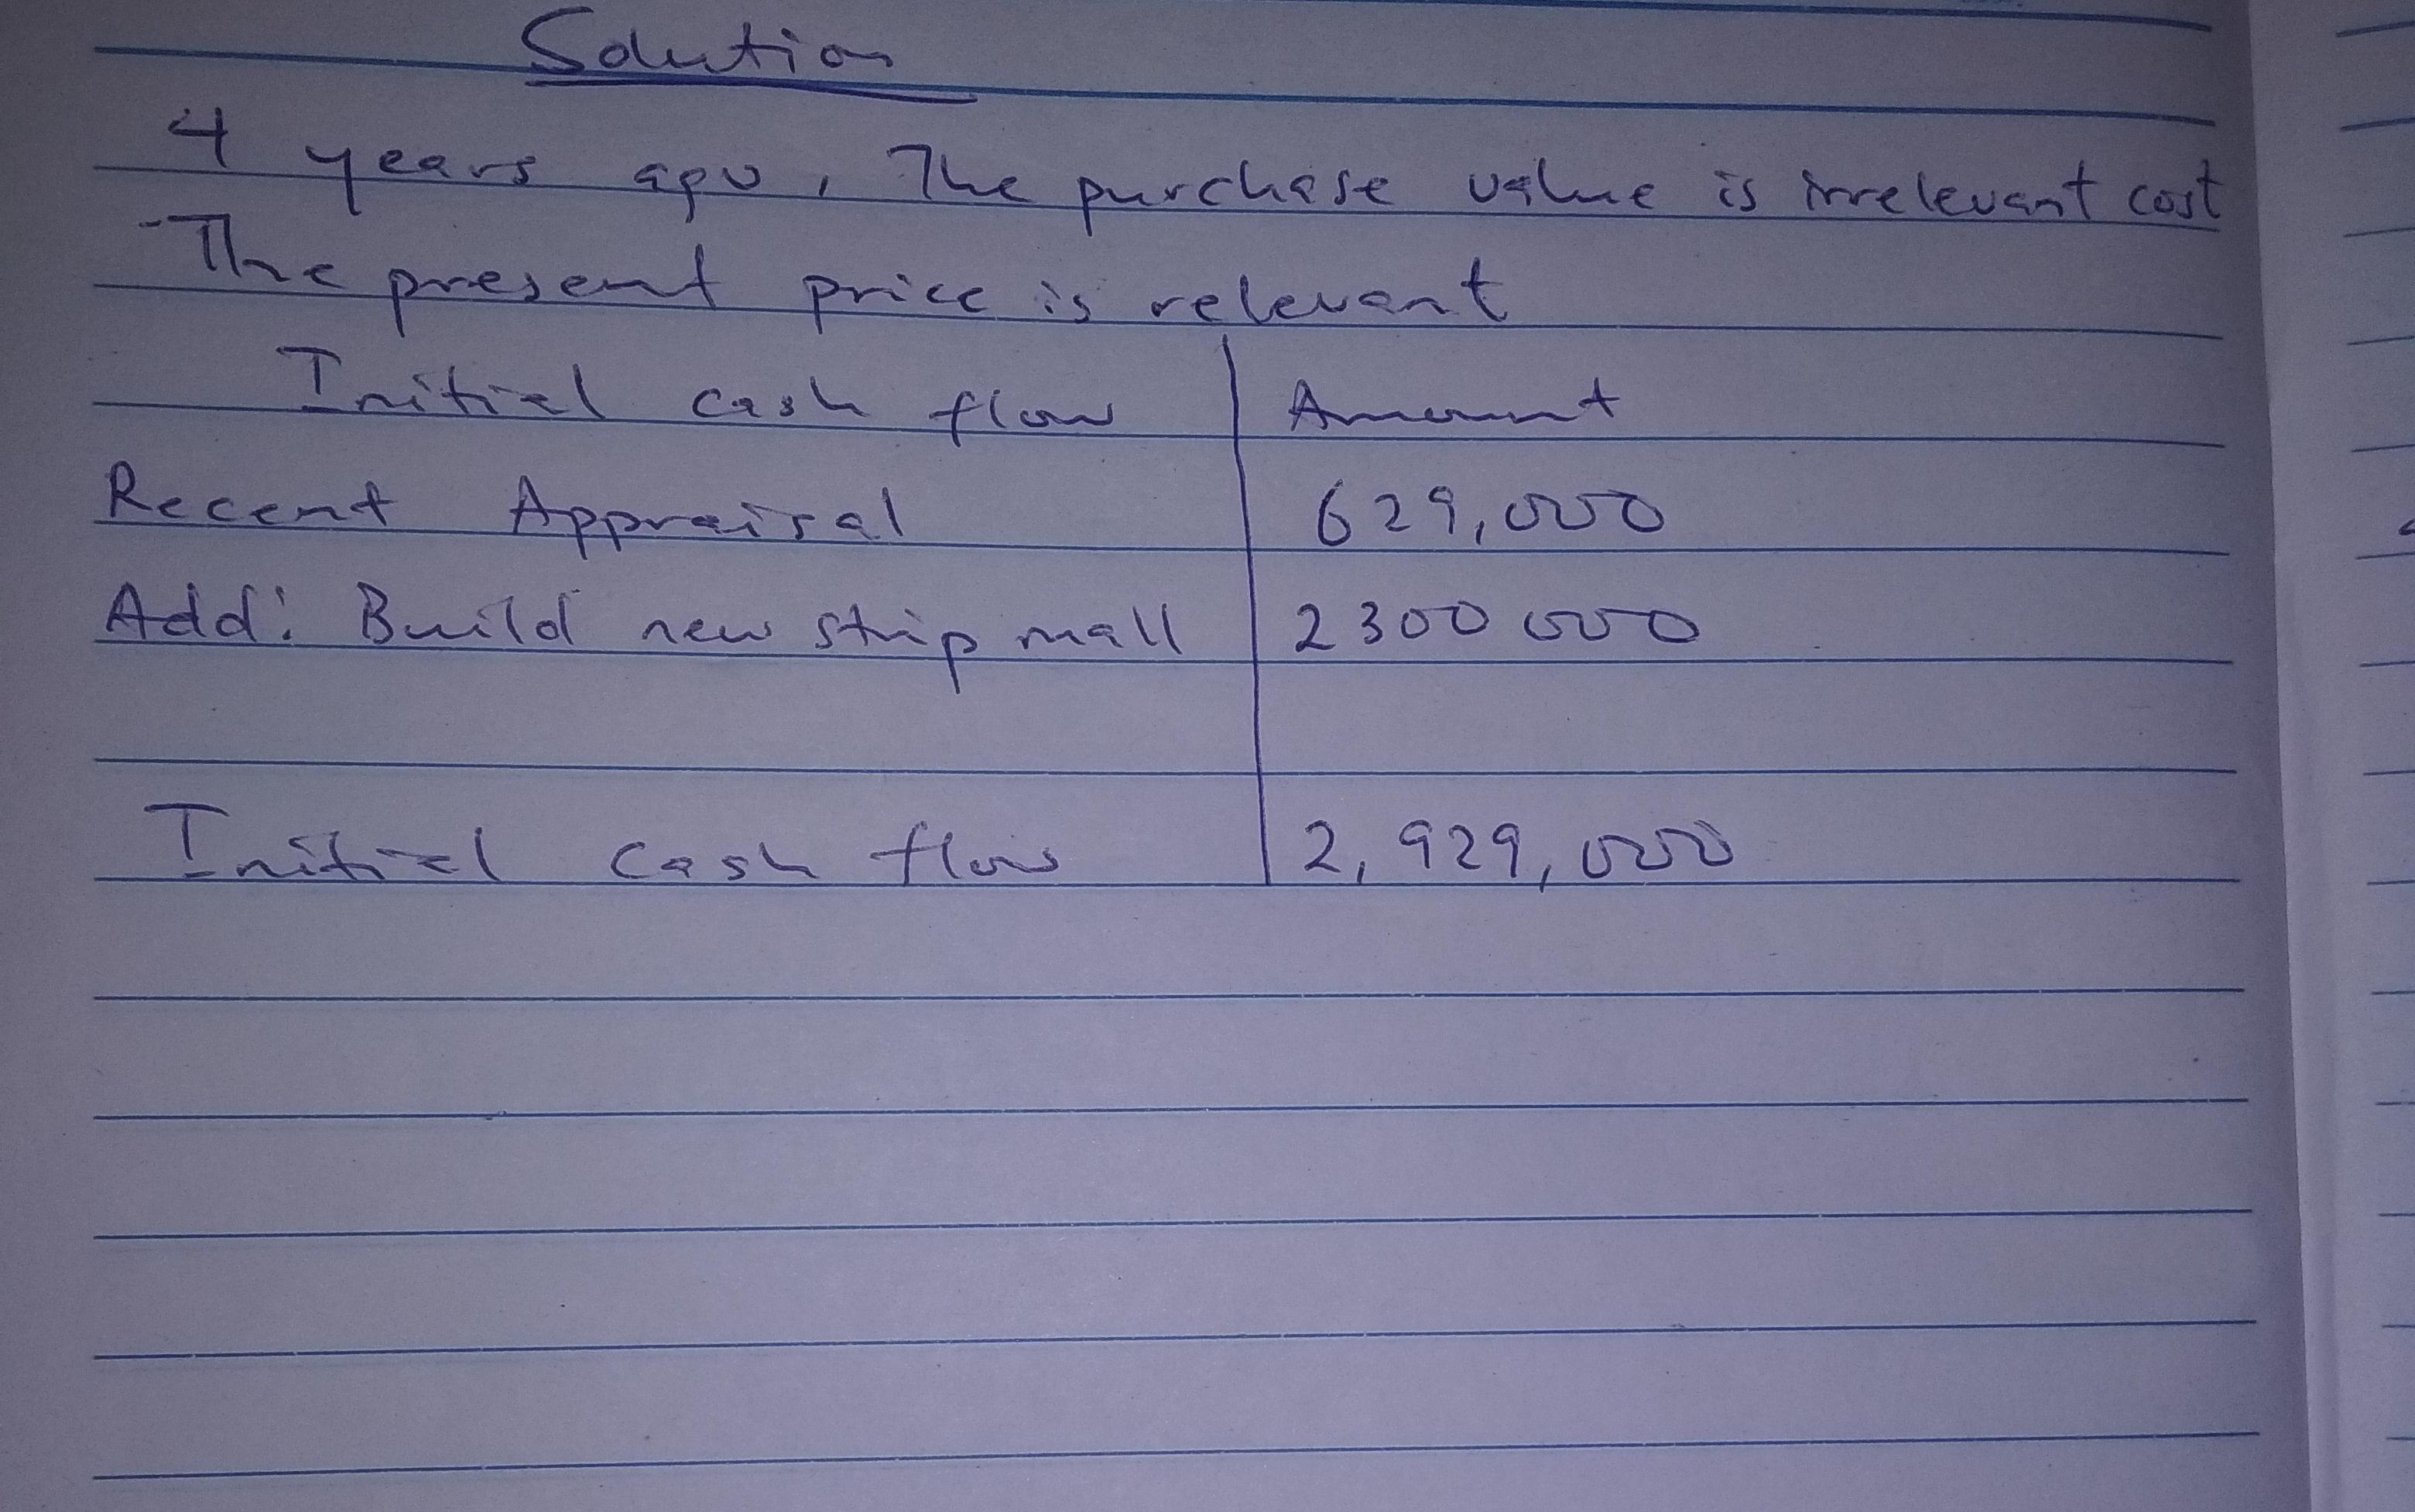 Solution
4 years ago, The purchase value is irrelevant cost
The present price is relevant
Initial cash flow | Amount
Recent Appraisal | 629,000
Add: Build new strip mall | 2300 000
Initial cash flow | 2,929,000